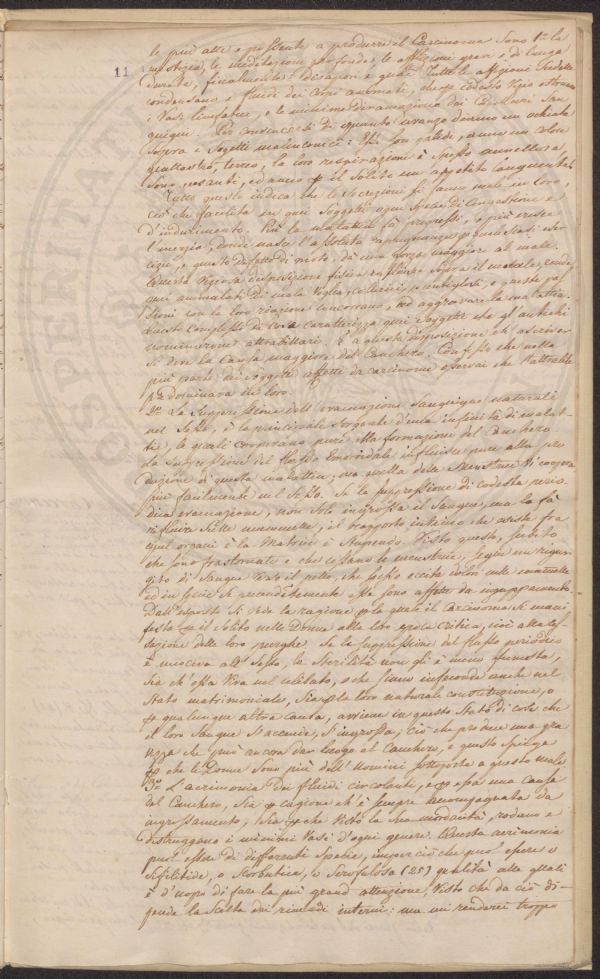 le più atte e possenti a produrre il Carcinoma sono 1.º la
mestizia, le meditazioni profonde, le afflizioni gravi e di lunga
11
durata, finalmente i dispiaceri e guai. Tutte le affezioni tristi
condensano i fluidi dei corpi animati, anche codesto vizio ostruisce
i vasi linfatici, e le minime diramazioni dei Capillari San
guigni. Per convincersi di quanto avanzo daremo un'occhiata
sopra i Sogetti malinconici: Essi son pallidi, anno un colore
giallastro, terreo, la loro respirazione è spesso
sono pesanti, ed anno per il solito un appetito languente.
Tutto questo indica che le secrezioni si fanno male in loro,
ciò che facilita in quei Soggetti ogni specie di Congestione e
d'indurimento. Più la malattia fà progressi, e più cresce
l'inerzia, donde nasce l'assoluta repugnanza per qualsiasi eser
cizio, e questo difetto di moto, dà una forza maggiore al male.
Questa viziosa disposizione fisica influisce sopra il morale, rende
quei ammalati di mala voglia, collerici, e queste pas
sioni con la loro riazione concorrono, ad aggravare la malattia.
Questo complesso di cose caratterizza quei Soggetti che gli antichi
nominarono attrabiliari. È a questa disposizione ch' ascriver
si deve la Causa maggiore del Canchero. Confesso che nella
più parte dei Soggetti affetti da carcinomi osservai che l'attrabile
dominava in loro.
2.º La Suppressione dell' evacuazioni Sanguigne naturali
nel Sesso, è la principale sorgente d'una infinità di malat
tie, le quali cooperano pure alla formazione del Canchero
La Suppressione del flusso Emorroidale influisce pure alla pro
duzione di questa malattia; ma quella delle Menstrue vi coopera
più facilmente nel Sesso. Se la suppressione di codesta perio
dica evacuazione, non solo ingrossa il Sangue, ma lo fà
rifluire sulle mammelle, il trasporto intimo che esiste fra
quei organi e la Matrice è stupendo. Visto questo, subito
che sono frastornate o che cessano le menstrue, segue un rigur
gito di Sangue verso il petto, che spesso eccita dolori nelle mammelle
ed in specie se precedentemente esse sono affette da ingorgamento.
Dall' esposto si vede la ragione per la quale il Carcinoma si mani
festa per il solito nelle Donne alla loro epoca critica, cioè alla ces
sazione delle loro purghe. Se la suppressione del flusso periodico
è nociva al Sesso, la Sterilità non gli è meno funesta,
sia ch' essa viva nel celibato, o che siano infeconde anche nel
Stato matrimoniale, sia per la loro naturale costituzione, o
per qualunque altra causa, avviene in questo stato di cose che
il loro Sangue s'accende, s'ingrossa; ciò che produce una gra
vezza che può ancora dar luogo al Canchero, e questo spiega
perchè le Donne sono più dell' Uomini sottoposte a questo male
3.º L'acrimonia dei fluidi circolanti, è per essa una causa
del Canchero, sia per cagione ch' è sempre accompagnata da
ingrossamento, sia perchè visto la sua mordacità, rodano e
distruggano i minimi vasi d'ogni genere. Questa acrimonia
puol esser di differenti Spezie, imperciochè puol essere o
Sifilitide, o Scorbutica, o Scrofolosa (25) qualità alle quali
è d'uopo di fare la più grand' attenzione, visto che da ciò di-
pende la Scelta dei rimedi interni: ma mi renderei troppo